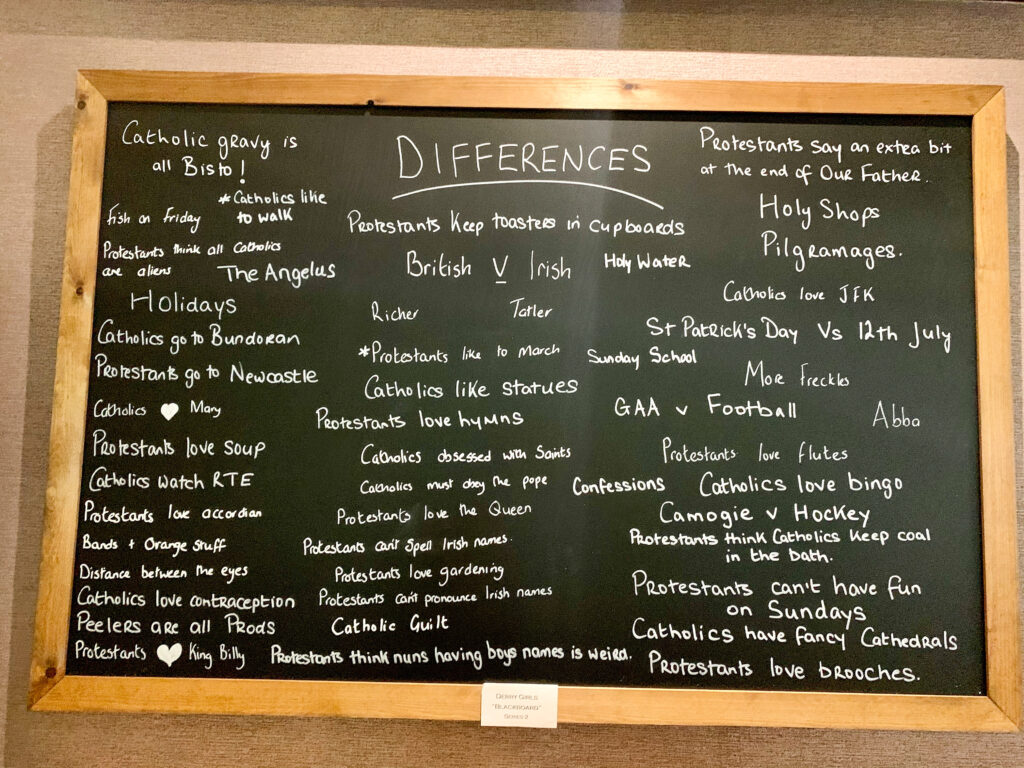 DIFFERENCES
Catholic gravy is
all Bisto!
*Catholics like
to walk
fish on friday
Protestants think all Catholics
are aliens
The Angelus
Holidays
Catholics go to Bundoran
Protestants go to Newcastle
Catholics ♥ Mary
Protestants love soup
Catholics watch RTE
Protestants love accordian
Bands + Orange stuff
Distance between the eyes
Catholics love contraception
Peelers are all Prods
Protestants ♥ King Billy
Protestants keep toasters in cupboards
British V Irish
Holy Water
Richer
Taller
*Protestants like to march
Sunday School
Catholics like statues
Protestants love hymns
Catholics obsessed with Saints
Catholics must obey the pope
Confessions
Protestants love the Queen
Protestants can't spell Irish names.
Protestants love gardening
Protestants can't pronounce Irish names
Catholic Guilt
Protestants think nuns having boys names is weird.
Protestants say an extra bit
at the end of Our Father.
Holy Shops
Pilgramages.
Catholics love JFK
St Patrick's Day Vs 12th July
More freckles
GAA v Football
Abba
Protestants love flutes
Catholics love bingo
Camogie v Hockey
Protestants think Catholics keep coal
in the bath.
Protestants can't have fun
on Sundays
Catholics have fancy Cathedrals
Protestants love brooches.
Derry Girls
"Blackboard"
Series 2